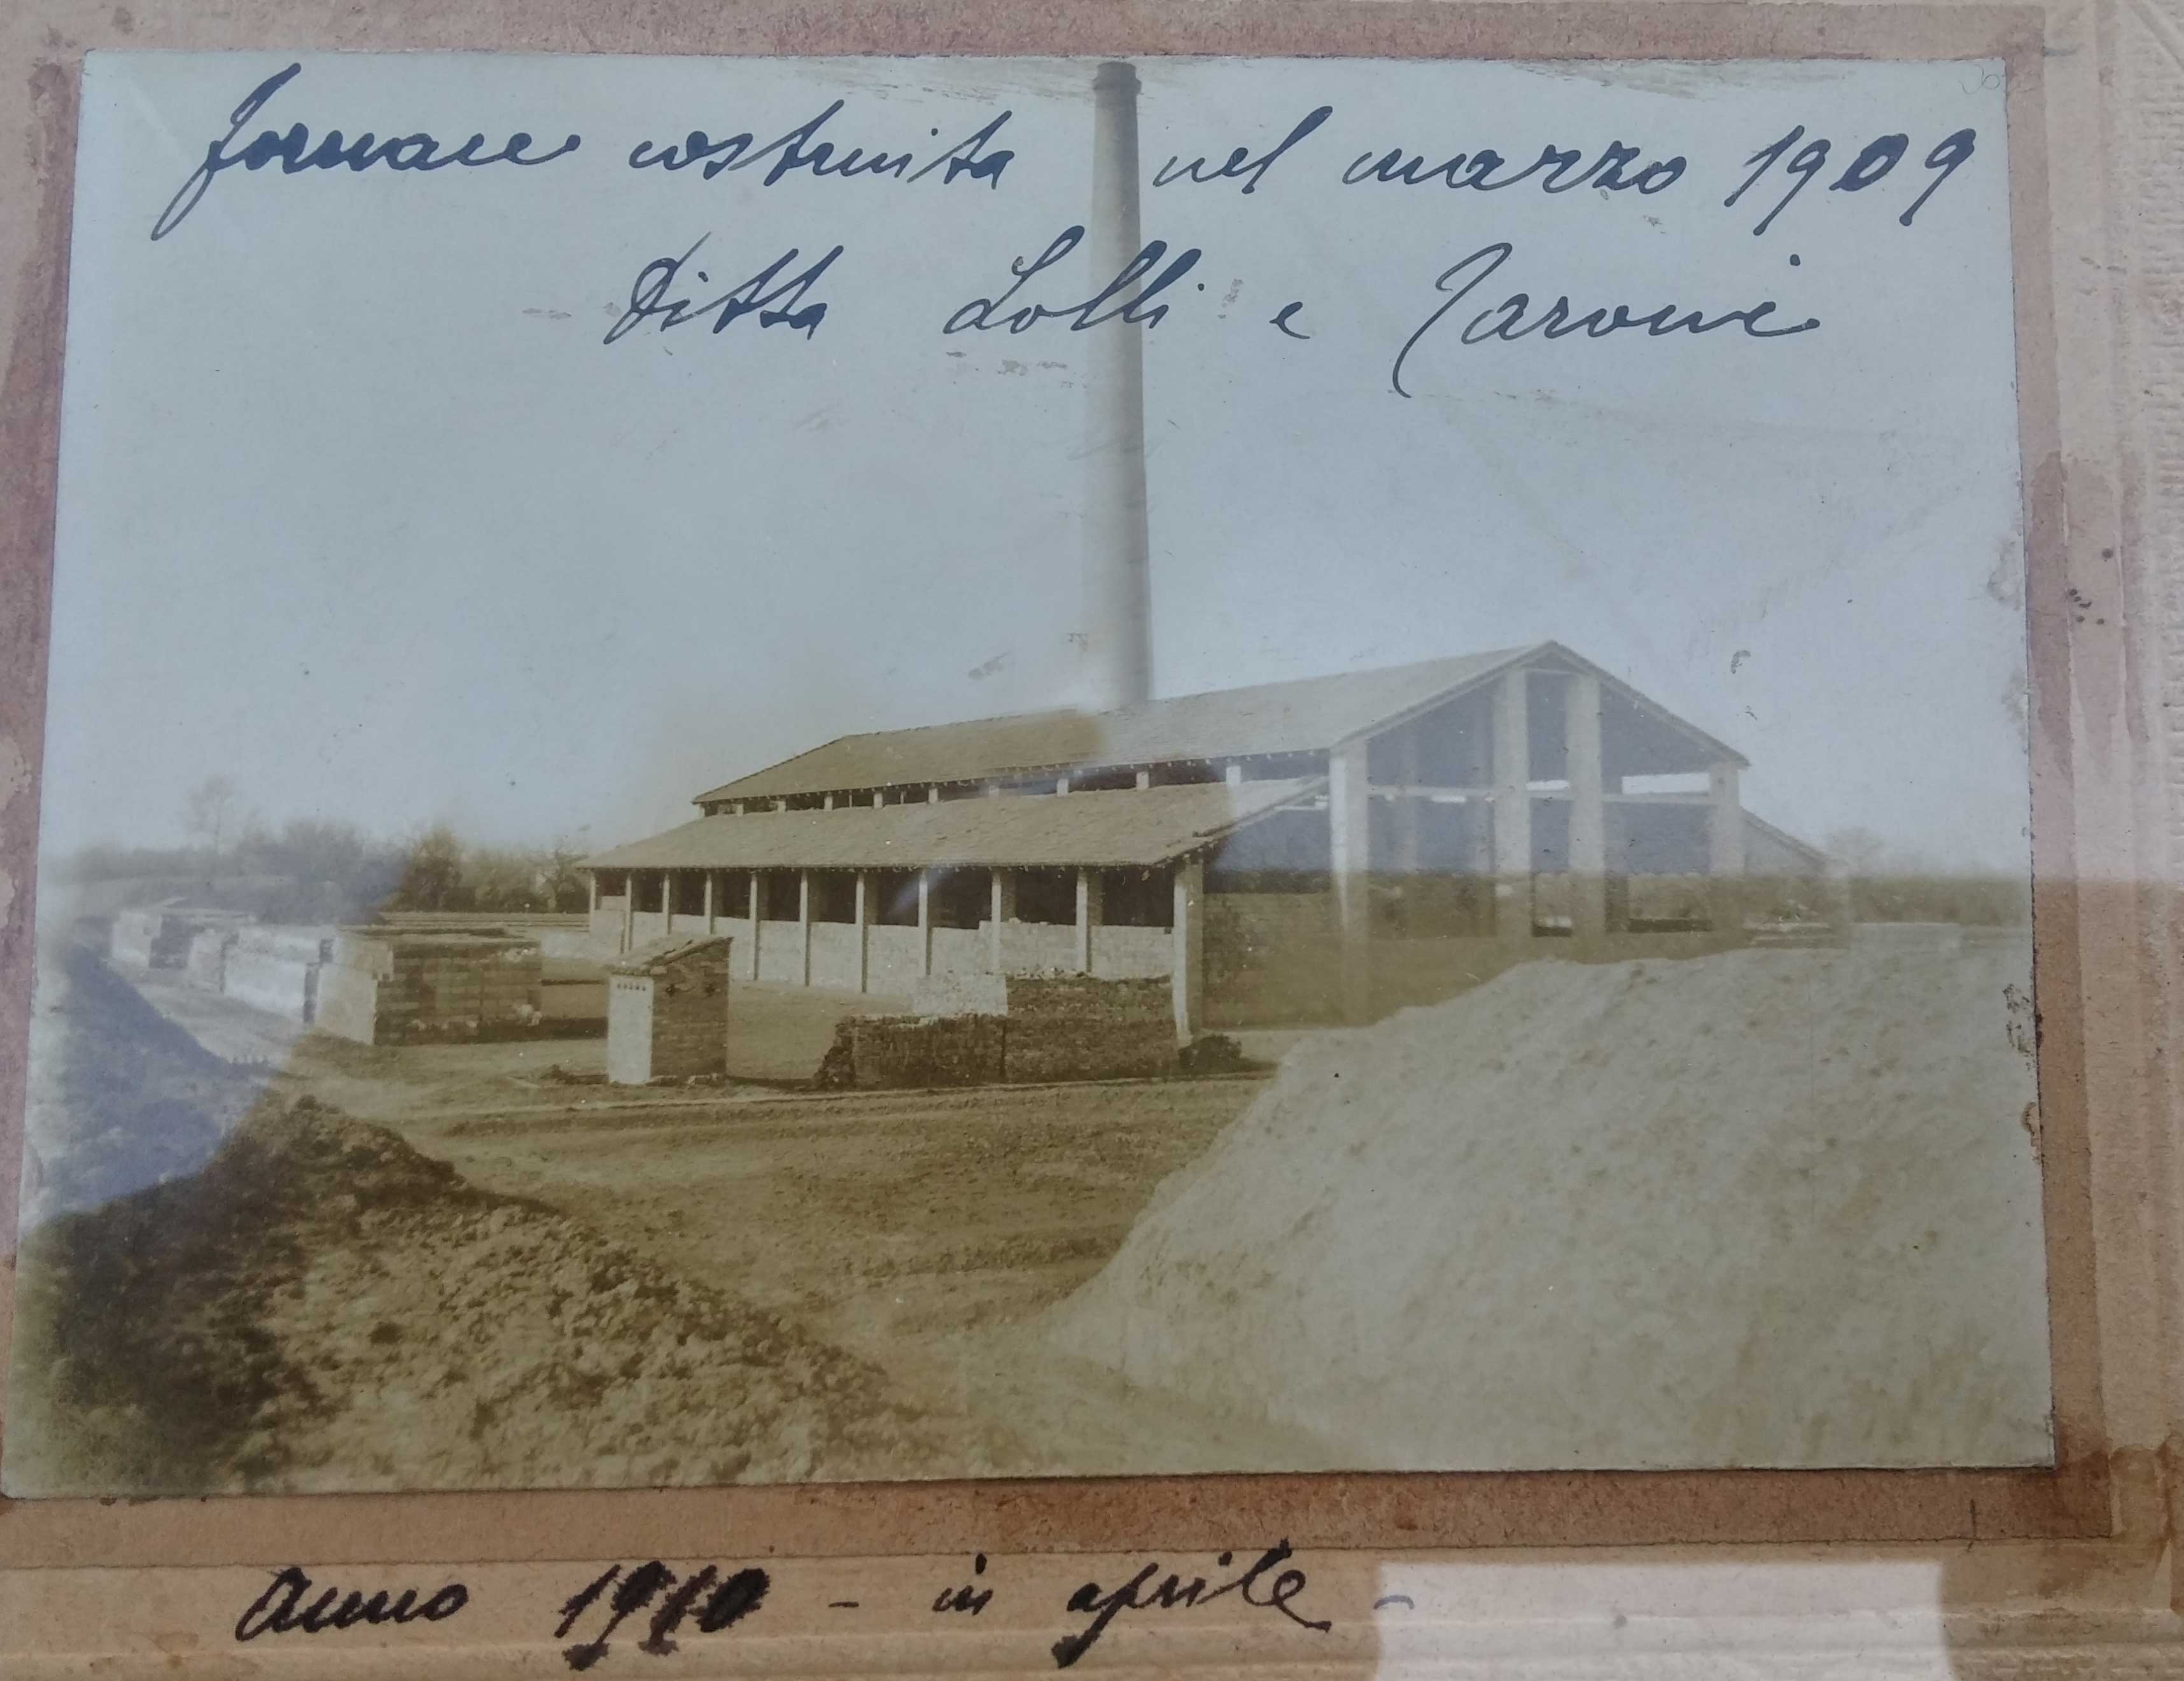 fornace costruita nel marzo 1909
Ditta Lolli e Taroni
anno 1910 - in aprile -